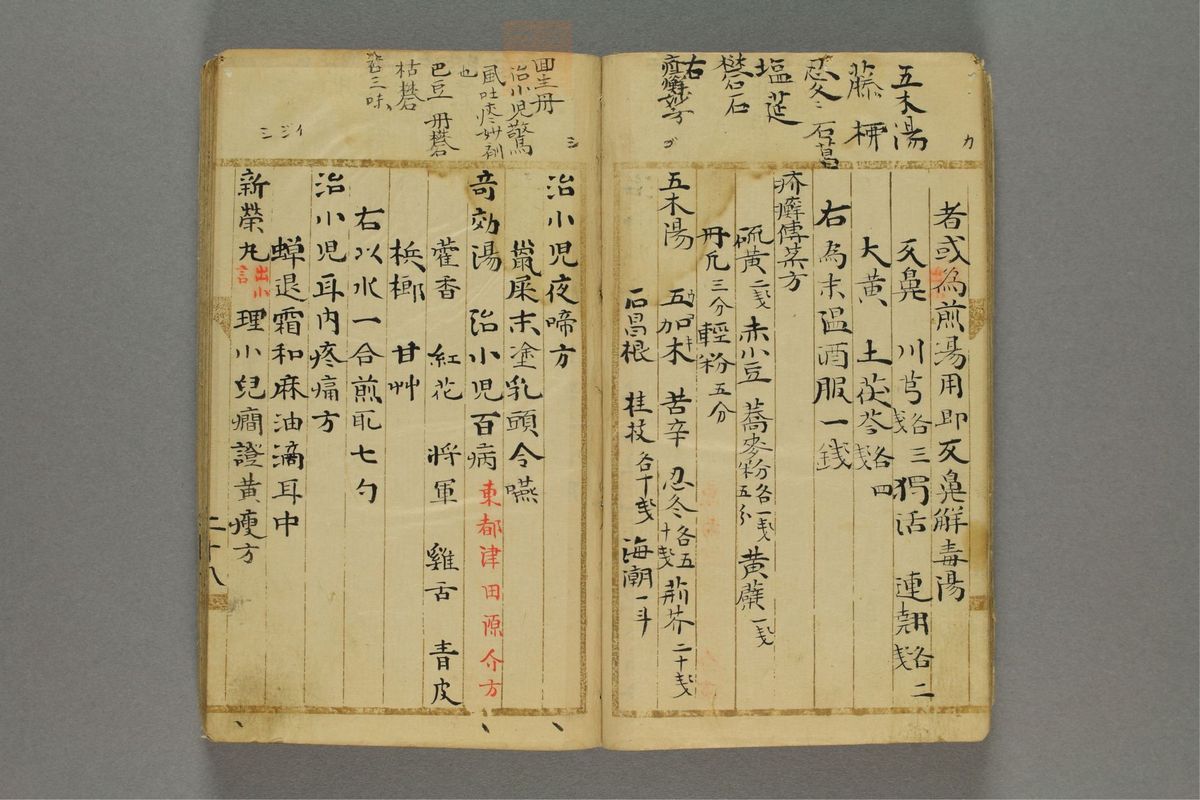 五木湯
藤 柳
忍冬 石菖
塩 莚
礬石
右
疥癬妙方
者或為煎湯用即反鼻解毒湯
反鼻 川芎各三戔 独活 連翹各二戔
大黄 土茯苓各四戔
右為末温酒服一錢
疥癬傅薬方
硫黄二戔 赤小豆 蕎麥粉各一戔五分 黄蘗一戔
丹凡三分 輕粉五分
五木陽 五加木 苦辛 忍冬各五十戔 荊芥二十戔
石昌根 桂枝各十戔 海潮一斗
回生丹
治小児驚
風吐痰妙剤
也
巴豆 丹礬
枯礬
右三味
治小児夜啼方
鼠屎末塗乳頭令嚥
奇効湯 治小児百病 東都津田原介方
藿香 紅花 将軍 雞舌 青皮
梹榔 甘艸
右以水一合煎取七勺
治小児耳内疼痛方
蝉退霜和麻油滴耳中
新榮丸 出小言 理小兒癇證黄瘦方
二十八